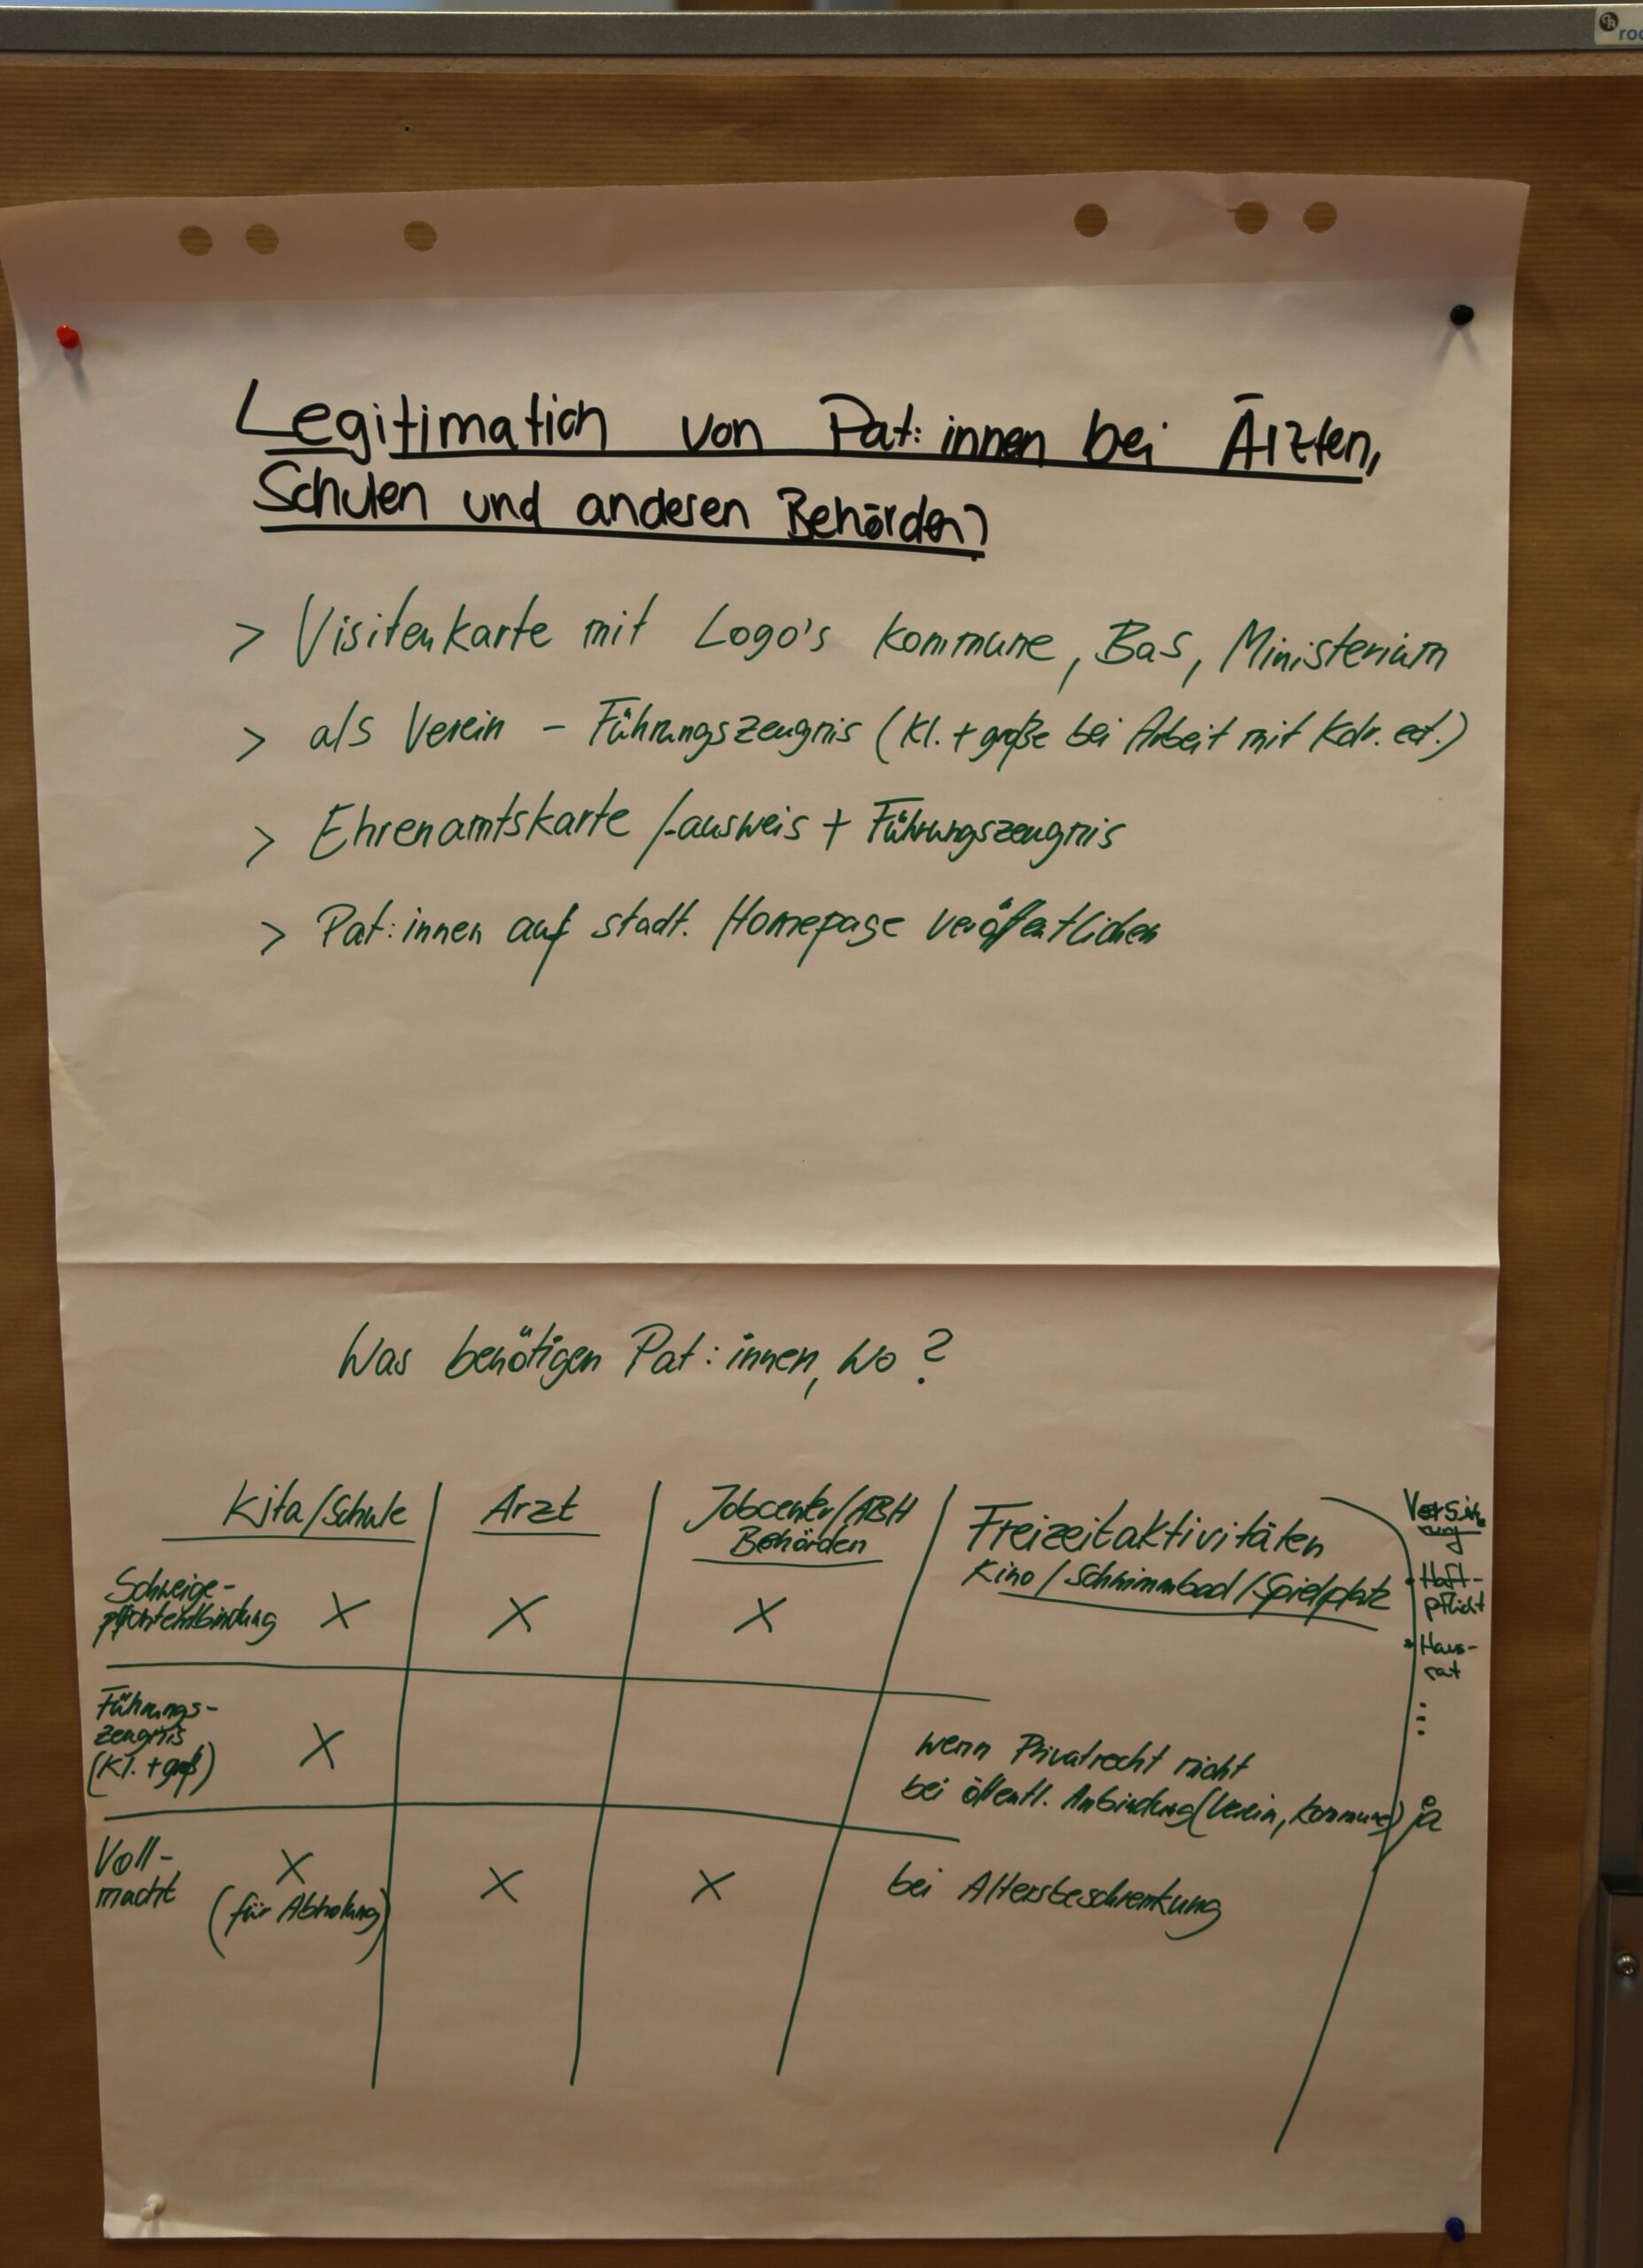 Legitimation von Pat:innen bei Ärzten,
Schulen und anderen Behörden?
> Visitenkarte mit Logo's Kommune, BaS, Ministerium
> als Verein - Führungszeugnis (Kl. + große bei Arbeit mit Kdr. ect.)
> Ehrenamtskarte /-ausweis + Führungszeugnis
> Pat:innen auf stadt. Homepage veröffentlichen
Was benötigen Pat:innen, wo?
Kita/Schule Arzt Jobcenter/ABH
Behörden
Freizeitaktivitäten
Kino/Schwimmbad/Spielplatz
Haft-
pflicht
Haus-
rat
...
Schweige-
pflichtentbindung X X X
Führungs-
zeugnis
(Kl. + groß) X
wenn Privatrecht nicht
bei öffentl. Anbindung (Verein, Kommune) ja
Voll-
macht X X X
(für Abholung)
bei Altersbeschrenkung